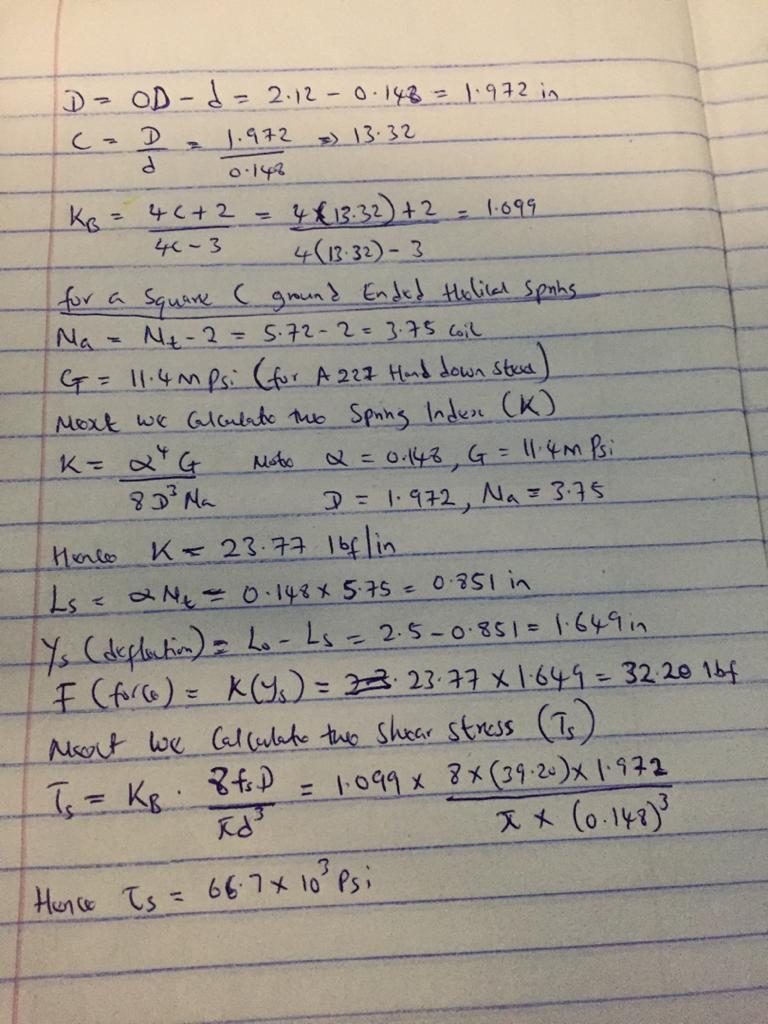 D = OD - d = 2.12 - 0.148 = 1.972 in
C = D/d = 1.972/0.148 => 13.32
KB = 4C+2/4C-3 = 4(13.32)+2/4(13.32)-3 = 1.099
for a Square C ground Ended Helical Spnhs
Na = Nt - 2 = 5.72 - 2 = 3.75 coil
G = 11.4 mpsi (for A227 Hard down steel)
Next we Calculate the Spring Index (K)
K = α⁴G/8D³Na Note α = 0.148, G = 11.4m Psi
D = 1.972, Na = 3.75
Hence K = 23.77 lbf/in
Ls = αNt = 0.148 x 5.75 = 0.851 in
Ys (deflection) = Lo - Ls = 2.5 - 0.851 = 1.649 in
F (force) = K(Ys) = 23.77 x 1.649 = 32.20 lbf
Next we Calculate the Shear Stress (Ts)
Ts = KB · 8fsD/πd³ = 1.099 x 8x(39.20)x1.972/π x (0.148)³
Hence τs = 66.7 x 10³ Psi